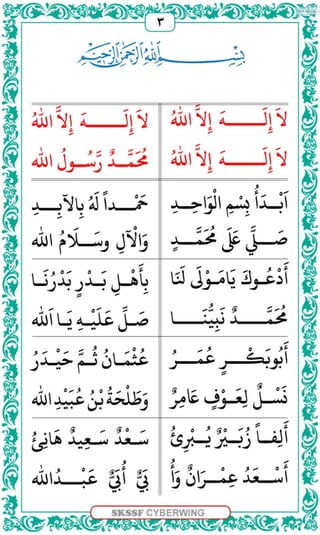 ٣
بِسْمِ اللهِ الرَّحْمٰنِ الرَّحِيْمِ
لاَ إِلَـــهَ إِلاَّ اللهُ لاَ إِلَـــهَ إِلاَّ اللهُ
لاَ إِلَـــهَ إِلاَّ اللهُ مُحَمَّدٌ رَّسُولُ الله
اَبْدَأُ بِسْمِ الْوَاحِدِ حَمْداً لَهُ بِالآبِـدِ
صَلَّى عَلَى مُحَمَّدٍ وَالْآلِ وَسلاَمُ الله
أَدْعُوكَ يَامَوْلَى لَنَا بِأَهْلِ بَدْرٍ بَدْرُنَا
مُحَمَّدٌ نَبِيُّنَا صَلِّ عَلَيْهِ يَا اَلله
أَبُوبَكْرٍ عُمَرُ عُثْمَانُ ثُمَّ حَيْدَرُ
نَسْلٌ لِعَوْفٍ عَامِرُ وَطَلْحَةُ بْنُ عُبَيْدِ الله
أَلِفاً زُبَيْرٌ يُبْرِئُ سَعْدٌ سَعِيدٌ هَانِئُ
أَسْعَدُ عِمْرَانُ وَأُ بَيٌّ أُبَيٌّ عَبْدُالله
SKSSF CYBERWING